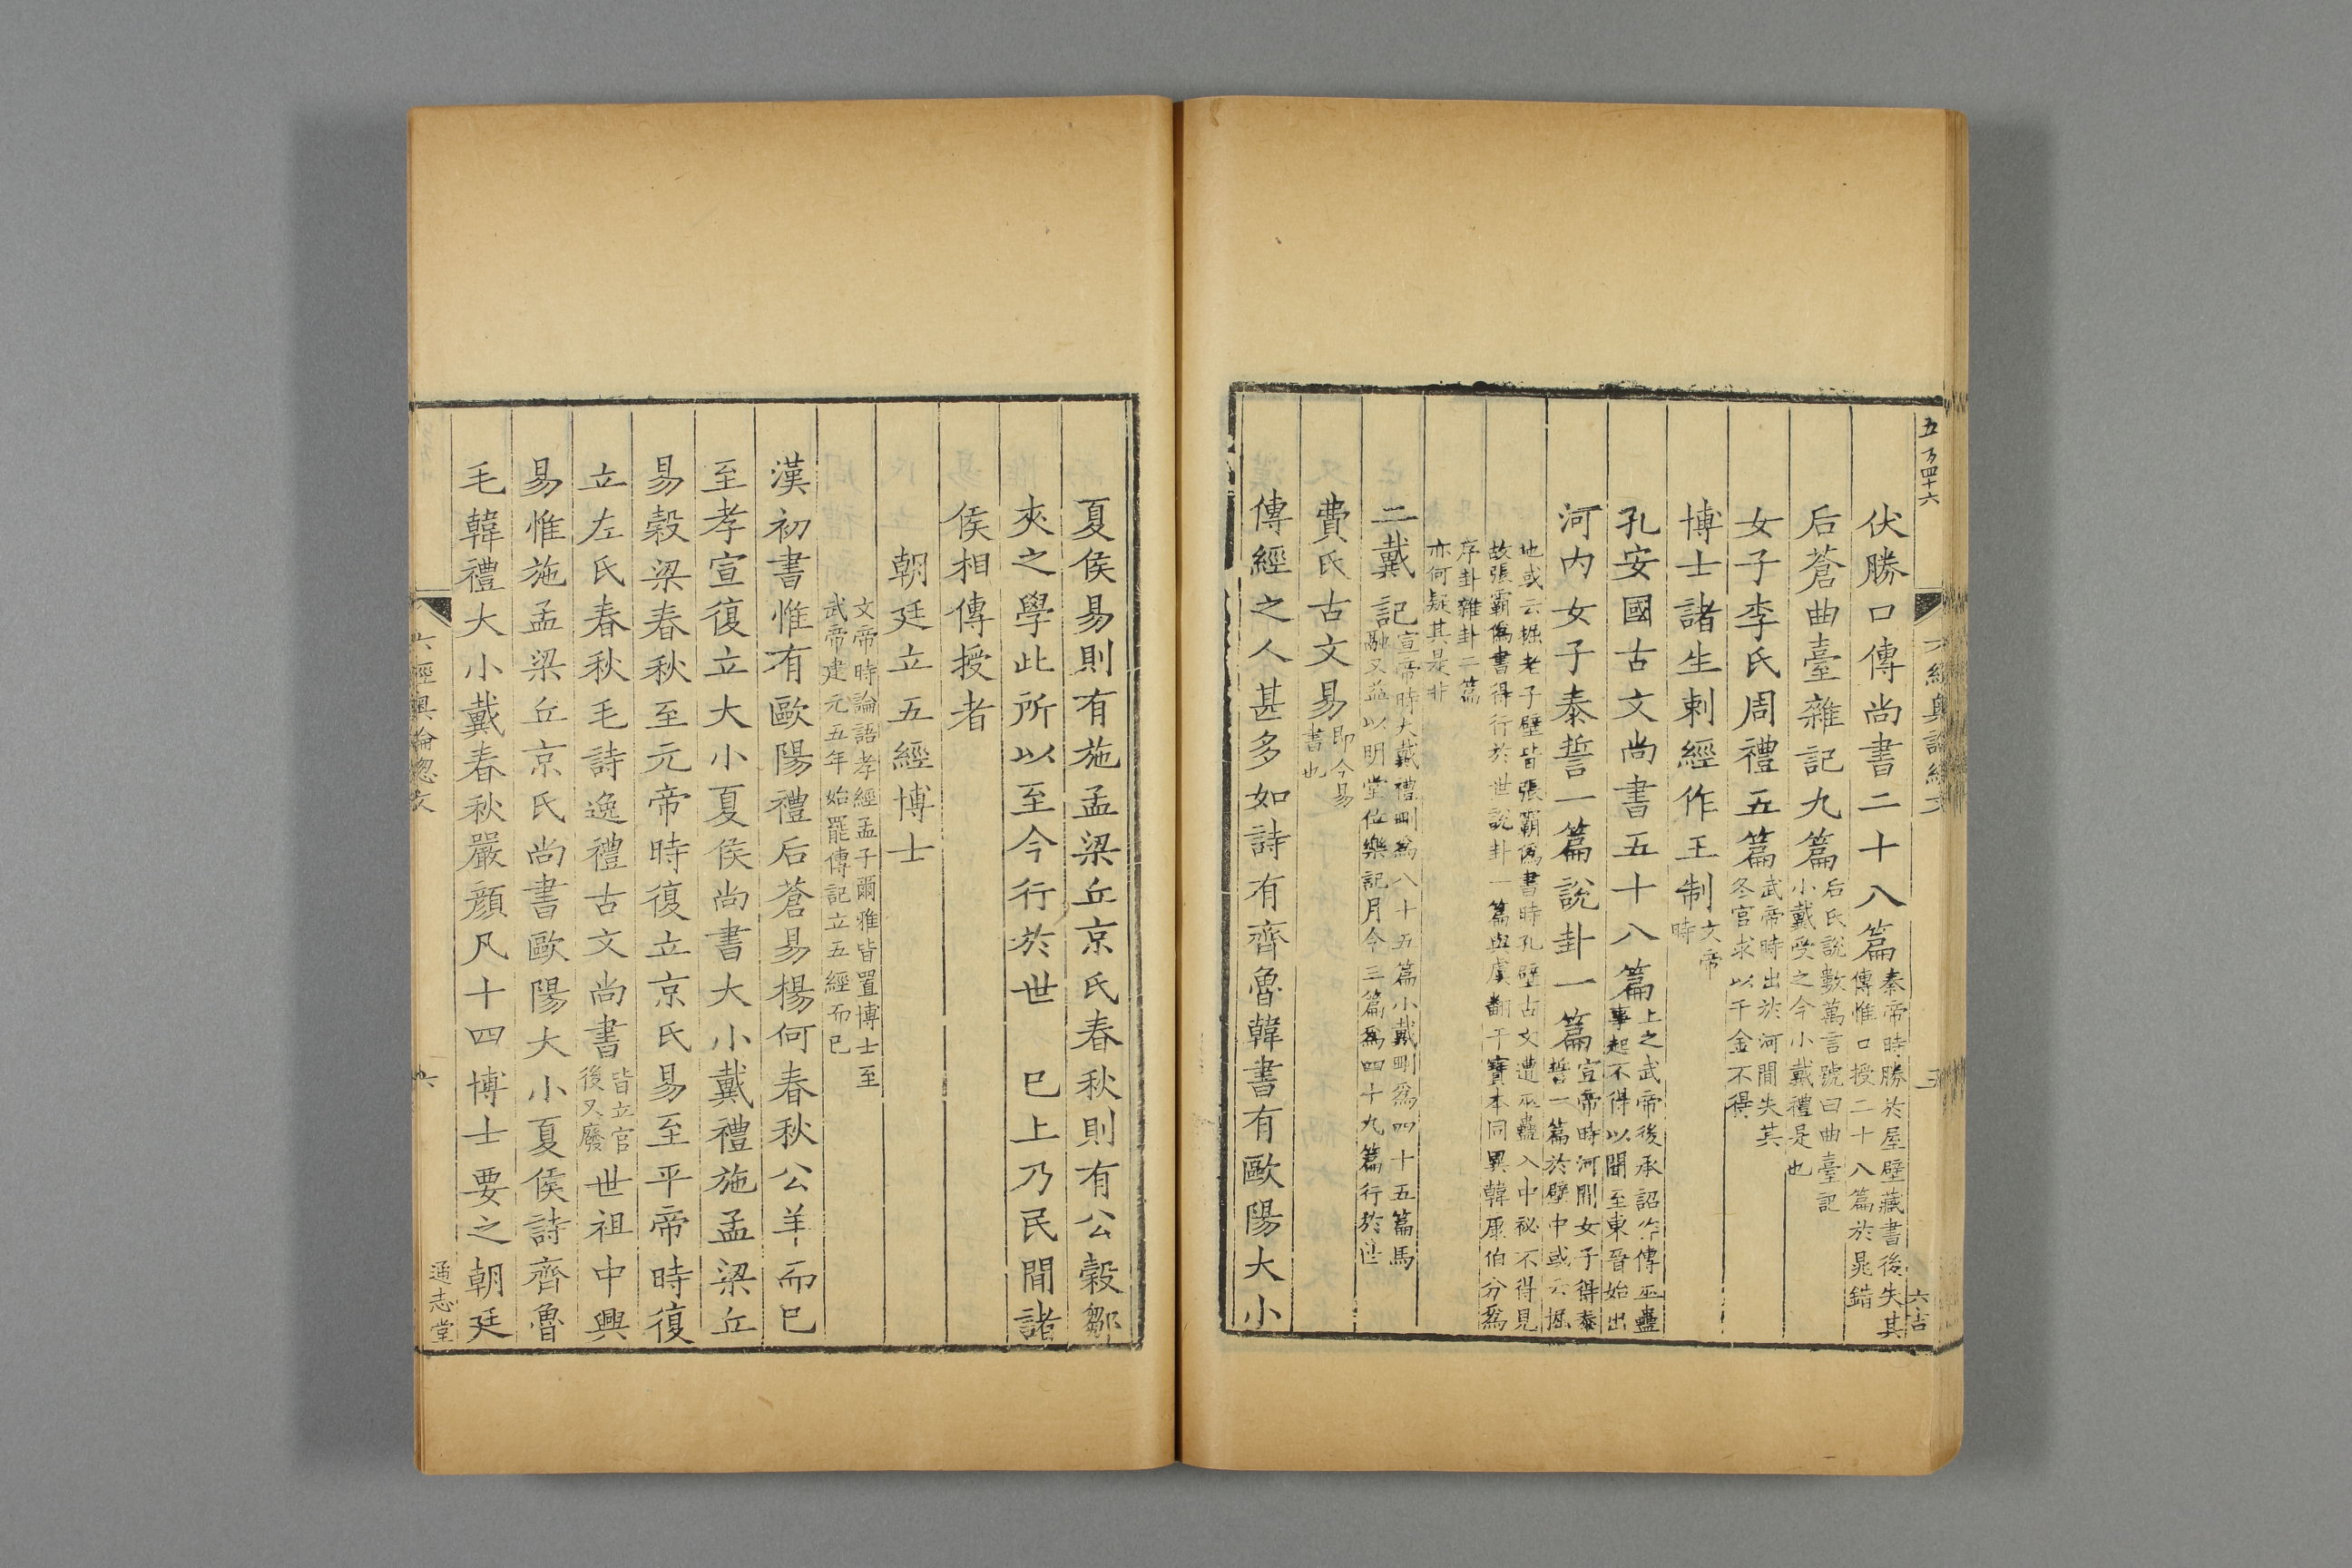 五百四十六
六經奧論總文
五
六吉
伏勝口傳尚書二十八篇秦帝時勝於屋壁藏書後失其傳惟口授二十八篇於晁錯
后蒼曲臺雜記九篇后氏說數萬言號曰曲臺記小戴受之今小戴禮是也
女子李氏周禮五篇武帝時出於河間失其冬官求以千金不得
博士諸生刺經作王制文帝時
孔安國古文尚書五十八篇上之武帝後承詔作傳巫蠱事起不得以聞至東晉始出
河内女子泰誓一篇說卦一篇宣帝時河間女子得泰誓一篇於壁中或云掘
地或云掘老子壁皆張霸僞書時孔壁古文遭巫蠱入中祕不得見故張霸僞書得行於世說卦一篇與虞翻干寶本同異韓康伯分爲
序卦雜卦二篇亦何疑其是非
二戴記宣帝時大戴禮刪爲八十五篇小戴刪爲四十五篇馬融又益以明堂位樂記月令三篇爲四十九篇行於世
費氏古文易即今易書也
傳經之人甚多如詩有齊魯韓書有歐陽大小
夏侯易則有施孟梁丘京氏春秋則有公穀鄒
夾之學此所以至今行於世 已上乃民間諸
侯相傳授者
朝廷立五經博士
文帝時論語孝經孟子爾雅皆置博士至武帝建元五年始罷傳記立五經而已
漢初書惟有歐陽禮后蒼易楊何春秋公羊而已
至孝宣復立大小夏侯尚書大小戴禮施孟梁丘
易穀梁春秋至元帝時復立京氏易至平帝時復
立左氏春秋毛詩逸禮古文尚書皆立官後又廢世祖中興
易惟施孟梁丘京氏尚書歐陽大小夏侯詩齊魯
毛韓禮大小戴春秋嚴顔凡十四博士要之朝廷
六經奧論總文
六
通志堂